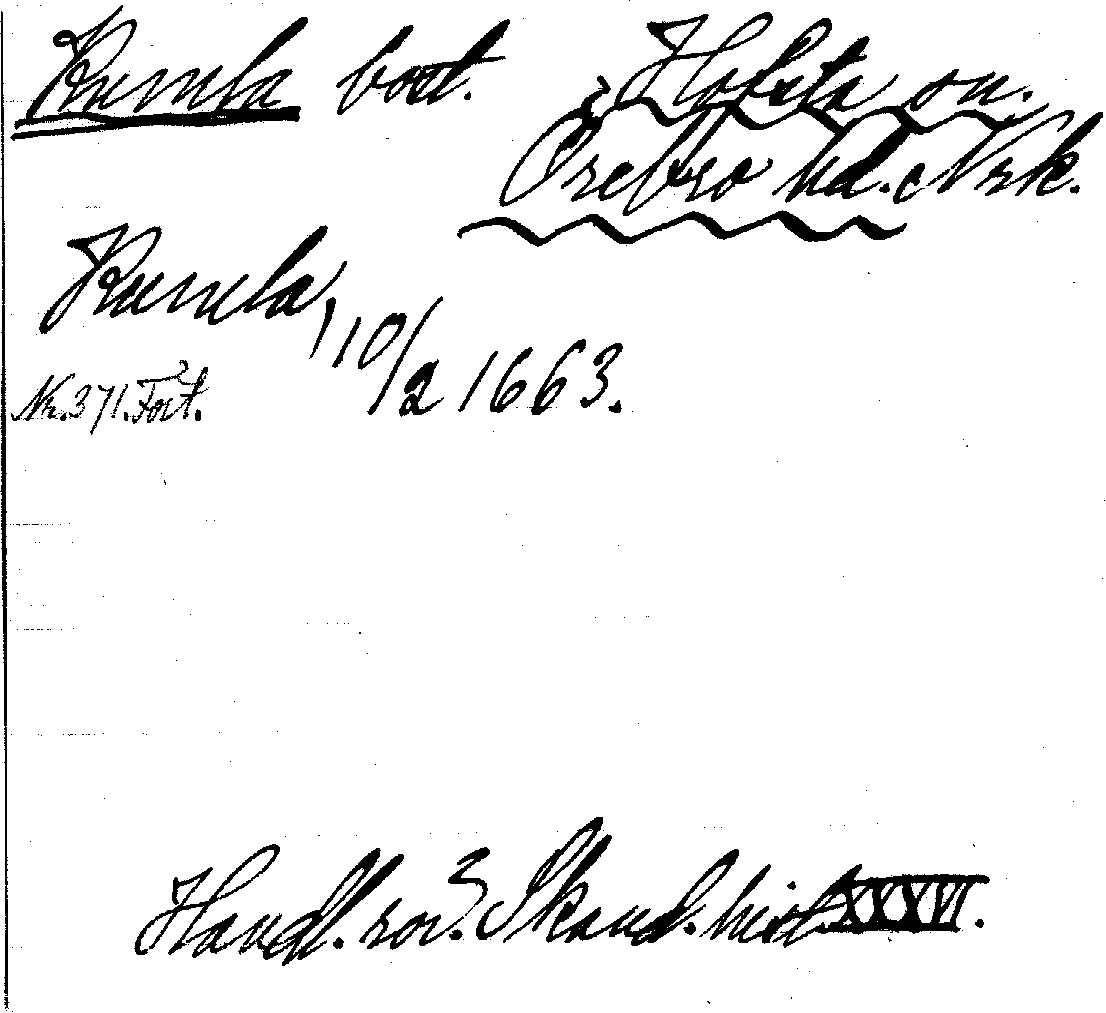 Kumla bost. Hofsta sn.
Örebro hd. Nrk.
Kumla, 10/2 1663.
Nr. 371. Fört.
Handl. rör. Skand. hist. XXXVI.